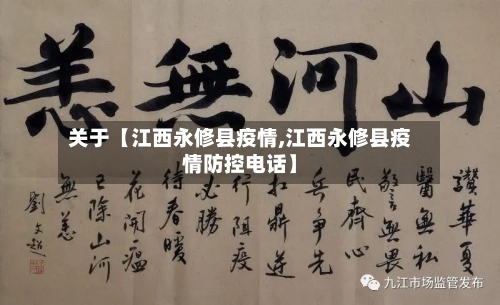 山河無恙
关于【江西永修县疫情,江西永修县疫
情防控电话】
讚華夏
醫無私
警無畏
民齊心
兵爭先
扛鼎逆
行阻疫
必勝
待春暖
花開瘟
已除山河
無恙
九江市场监管发布